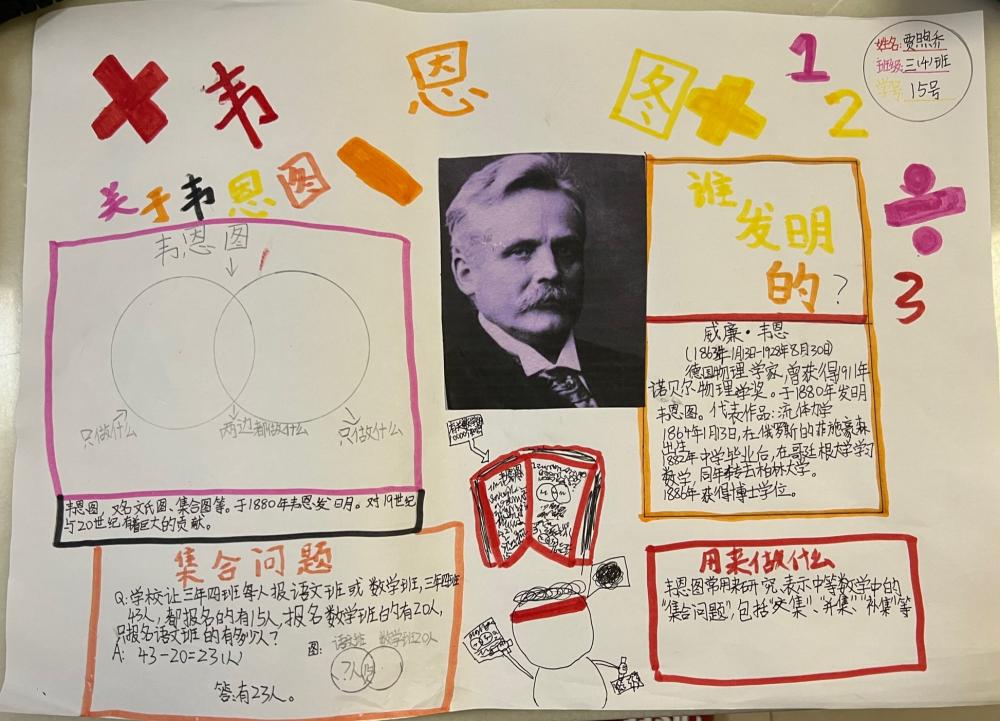 韦 恩 图
1
2
姓名:贾煦乔
班级:三(4)班
学号 15号
关于韦恩图
韦恩图
只做什么
两边都做什么
只做什么
韦恩图,又名文氏图、集合图等。于1880年韦恩发明。对19世纪
与20世纪有着巨大的贡献。
谁
发明
的?
3
威廉·韦恩
1月3日-1928年8月30日)
德国物理学家,曾获得1911年
诺贝尔物理学奖。于1880年发明
韦恩图。代表作品:流体力学
1864年1月3日,在俄罗斯的菲施豪森
出生
1882年中学毕业后,在哥廷根大学学习
数学,同年转去柏林大学。
1886年获得博士学位。
集合问题
Q:学校让三年四班每人报语文班或数学班,三年四班
43人,都报名的有15人,报名数学班的有20人,
只报名语文班的有多少人?
A: 43-20=23(人)
图:
语文班 数学班20人
?人
答:有23人。
用来做什么
韦恩图常用来研究、表示中等数学中的
"集合问题",包括"交集"、"并集"、"补集"等